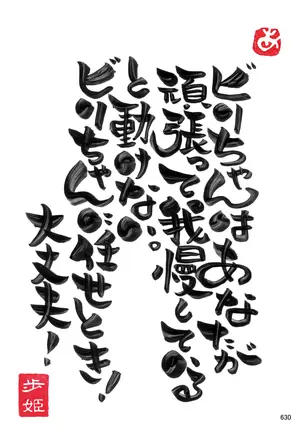 あ
ビリちゃんはあなたが
頑張って我慢している
と動けない。
ビリちゃんに任せとき!
大丈夫!
歩姫
630